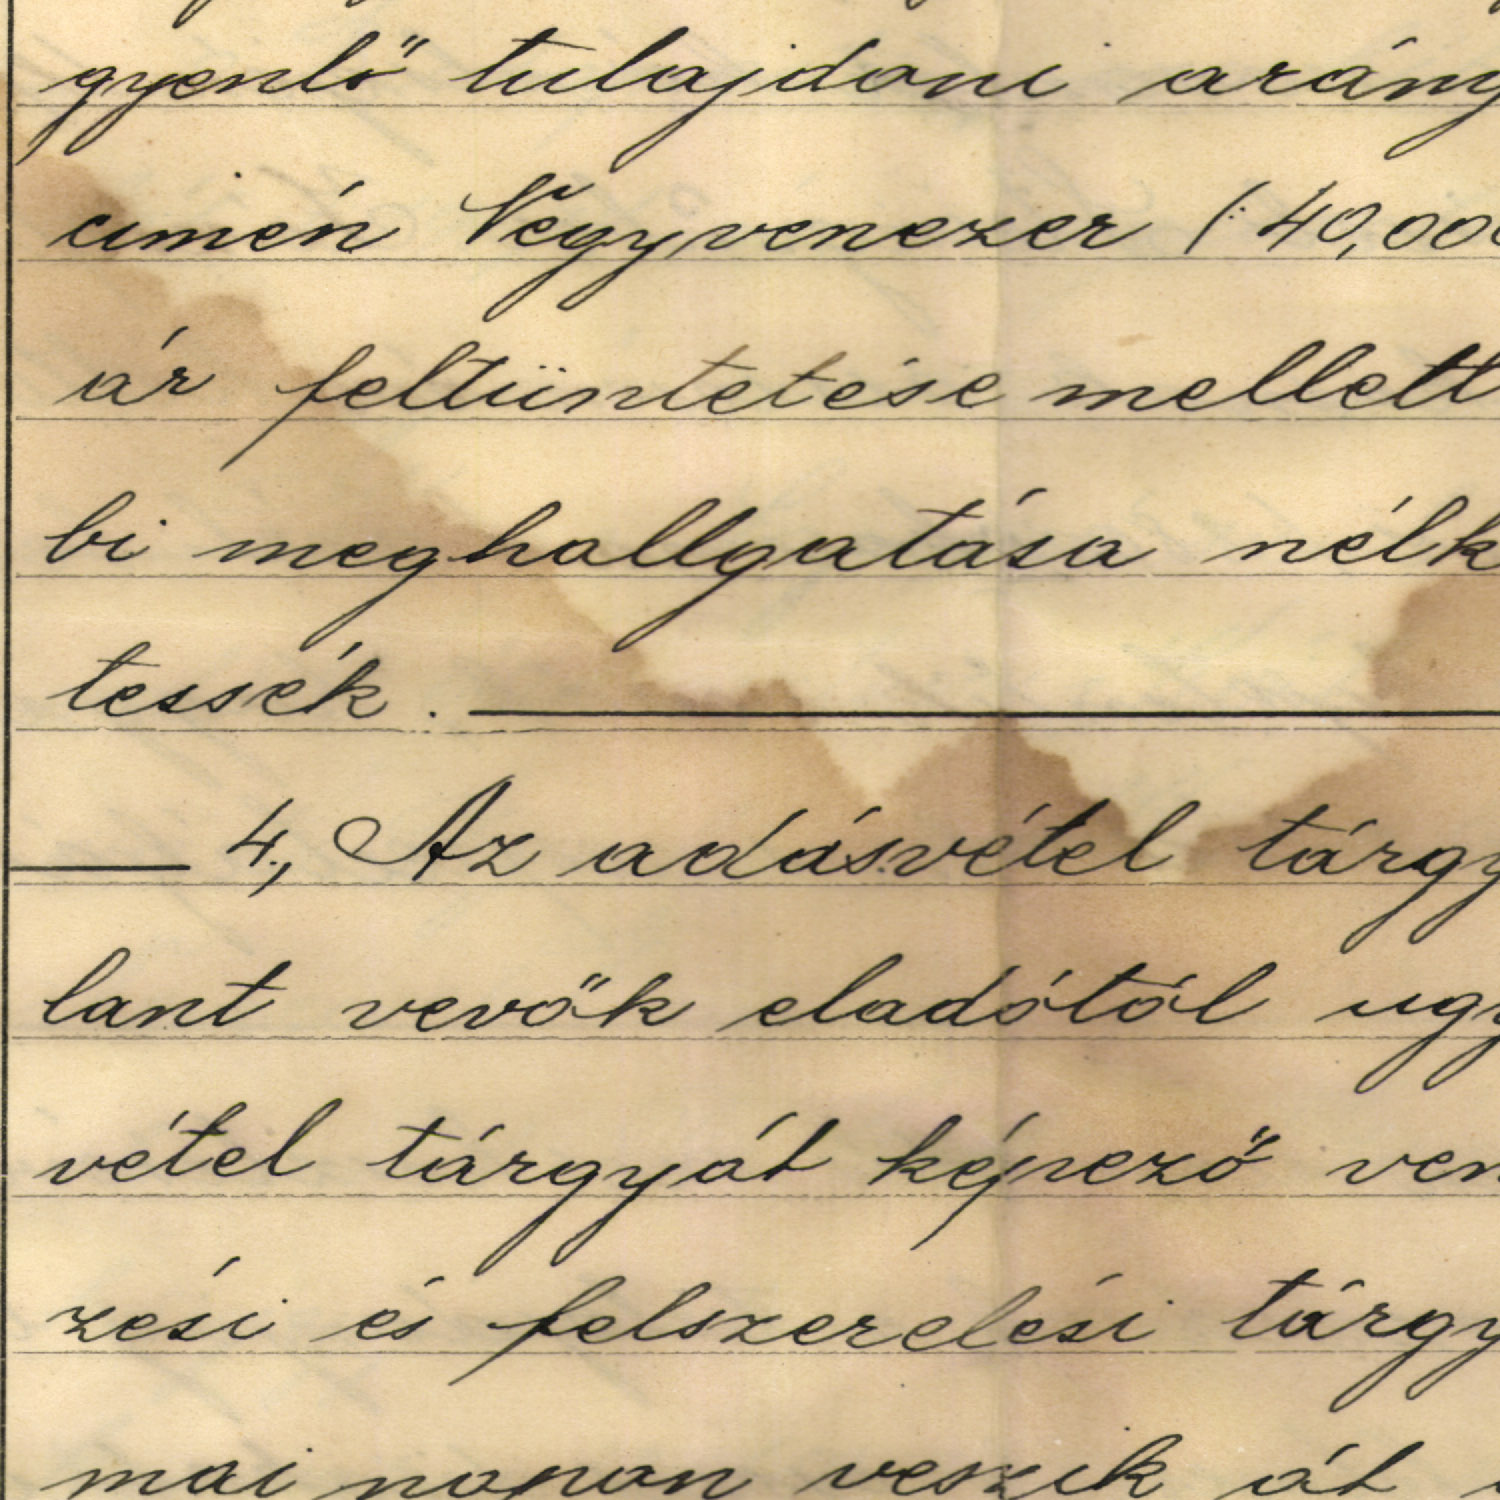 gyenlő tulajdoni arány
cimén Negyvenezer (: 40,000
ár feltüntetése mellett
bi meghallgatása nélk
tessék.
4., Az adásvétel tárgy
lant vevők eladótól ugy
vétel tárgyát képező ven
zési és felszerelési tárgy
mai napon veszik át